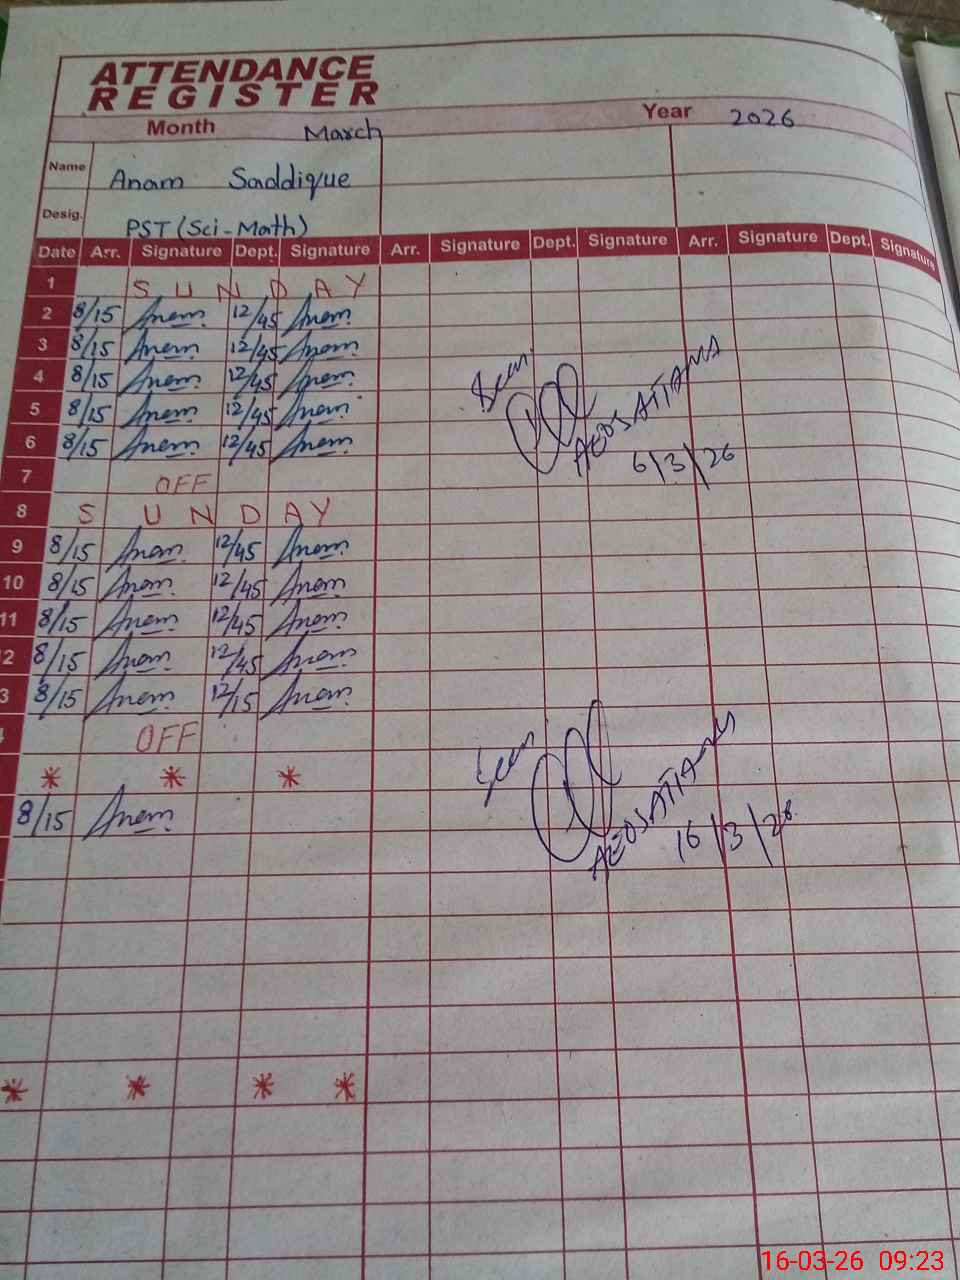 ATTENDANCE
REGISTER
Month March Year 2026
Name Anam Saddique
Desig. PST (Sci-Math)
Date Arr. Signature Dept. Signature Arr. Signature Dept. Signature Arr. Signature Dept. Signature
1 SUNDAY
2 8/15 Anam 12/45 Anam
3 8/15 Anam 12/45 Anam
4 8/15 Anam 12/45 Anam
5 8/15 Anam 12/45 Anam
6 8/15 Anam 12/45 Anam
Seen
AEO SATTIANA
6/3/26
7 OFF
8 SUNDAY
9 8/15 Anam 12/45 Anam
10 8/15 Anam 12/45 Anam
11 8/15 Anam 12/45 Anam
2 8/15 Anam 12/45 Anam
3 8/15 Anam 12/15 Anam
4 OFF
* * *
8/15 Anam
Seen
16/3/26
* * * *
16-03-26 09:23